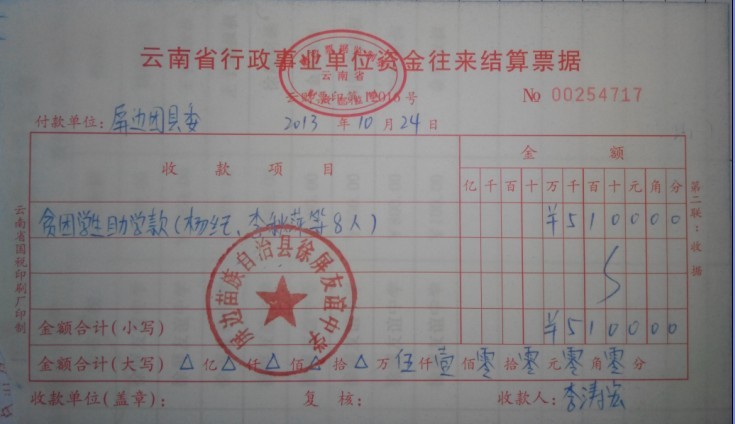 云南省行政事业单位资金往来结算票据
云南省
号
№ 00254717
付款单位：屏边团县委 2013 年 10 月 24 日
收款项目 金额
亿 千 百 十 万 千 百 十 元 角 分
贫困学生助学款（杨红、李秋萍等8人） ¥ 5 1 0 0 0 0
金额合计（小写） ¥ 5 1 0 0 0 0
金额合计（大写） △ 亿 △ 仟 △ 佰 △ 拾 △ 万 伍 仟 壹 佰 零 拾 零 元 零 角 零 分
收款单位（盖章）： 复核： 收款人：李涛宏
屏边苗族自治县徐屏友谊中学
云南省国税印刷厂印制
第二联：收据